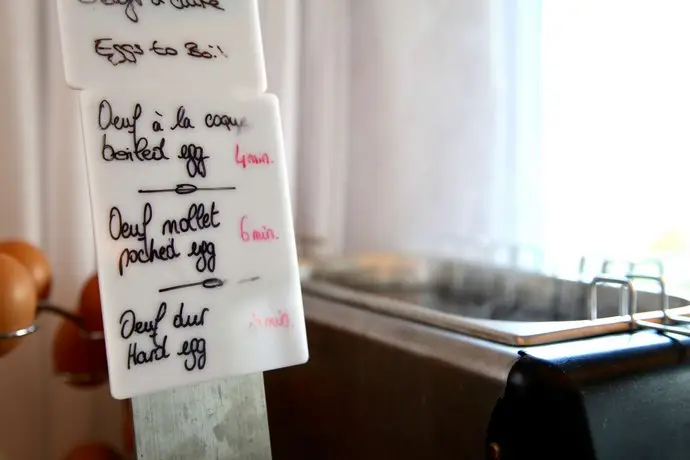 Oeufs à cuire
Eggs to Boil
Oeuf à la coque
boiled egg 4 min.
Oeuf mollet
poched egg 6 min.
Oeuf dur
Hard egg min.